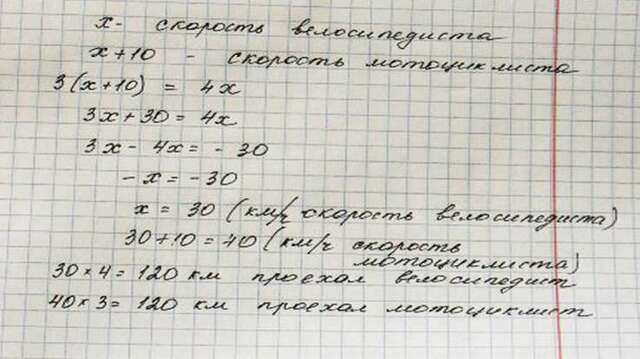 x - скорость велосипедиста
x + 10 - скорость мотоциклиста
3(x+10) = 4x
3x + 30 = 4x
3x - 4x = - 30
- x = - 30
x = 30 (км/ч скорость велосипедиста)
30 + 10 = 40 (км/ч скорость
мотоциклиста)
30 × 4 = 120 км проехал велосипедист
40 × 3 = 120 км проехал мотоциклист